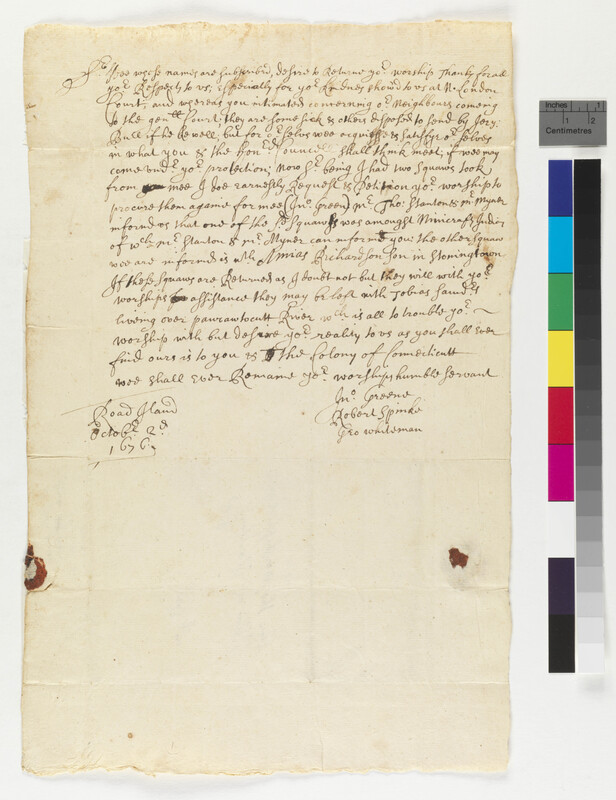 Sr Wee whose names are subscribed, desire to Returne yor worship Thanks for all
yor Respects to vs, especially for yor kindnes showd to vs at N. London
Court, and whereas you intimated concerning or Neighbours comeing
to the genll Court, they are some sick & others disposed to send by Jery:
Bull if he be well, but for or selves wee acquiesse & sattisfye or selves
in what you & the Honrd Councell shall think meet, if wee may
come vndr yor protection; Now Sr being I had two squaws took
from mee I doe earnestly Request & Petition yor worship to
procure them againe for mee (Jno Green) Mr Tho: Stanton & mr Myner
informd vs that one of the sd Squaws was amongst Ninicrafts Indns
of wch mr Stanton & mr Myner can informe you the other Squaw
wee are informd is wth Amias Richardson son in Stoningtown
If these Squaws are Returned as I doubt not but they will with yor
worships assistance they may be left with Tobias Sandrs
liveing over pawcawtucutt River wch is all to trouble yor
worship with but desire yor reality to vs as you shall ever
find ours is to you & the Colony of Connecticutt
wee shall ever Remaine yor worships humble Servant
Jno Greene
Robert Spinke
Geo Whiteman
Road Iland
Octobr 2d
1676
Inches 1
Centimetres 1 2